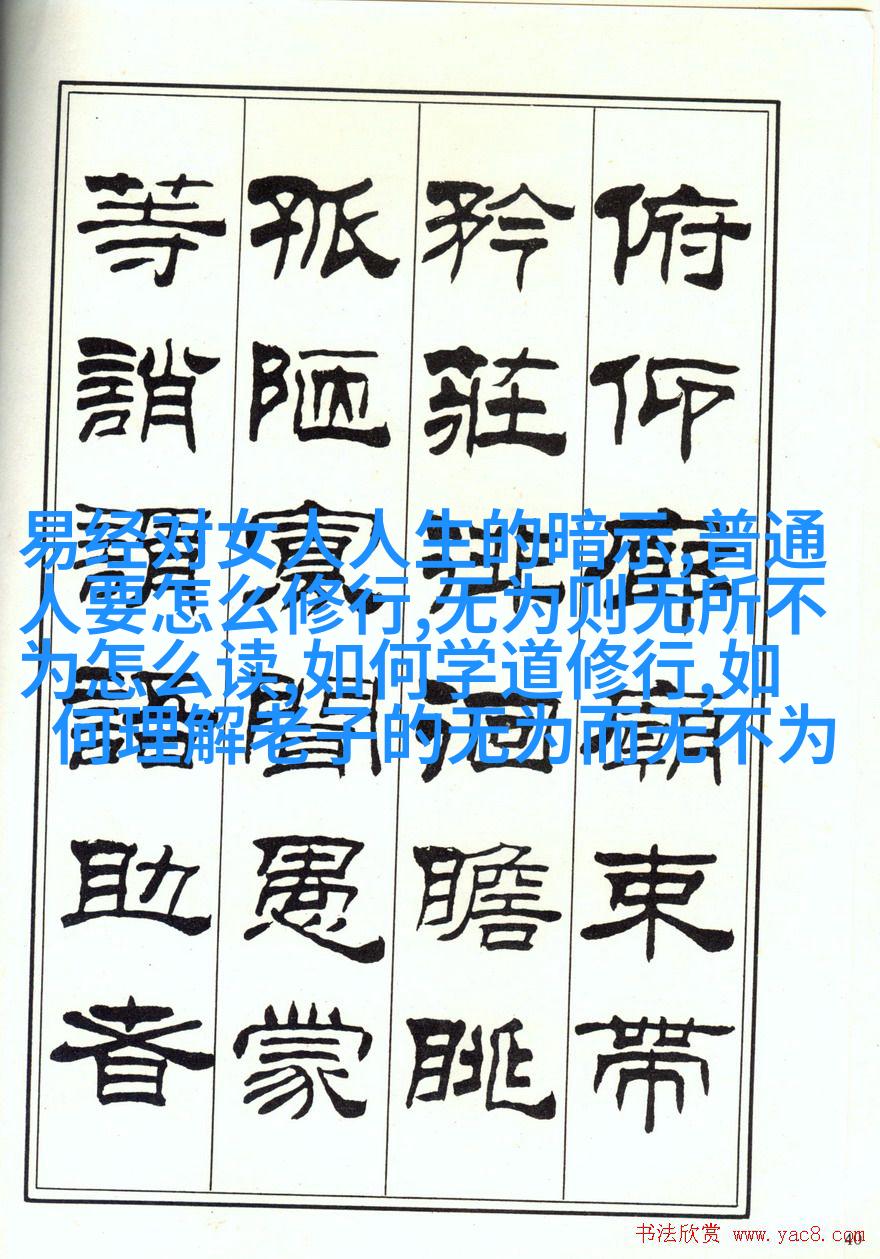 俯仰廊廟束帶
矜莊徘徊瞻眺
孤陋寡聞愚蒙
等誚謂語助者
易经对女人人生的暗示,普通
人要怎么修行,无为则无所不
为怎么读,如何学道修行,如
何理解老子的无为而无不为
书法欣赏 www.yac8.com
40